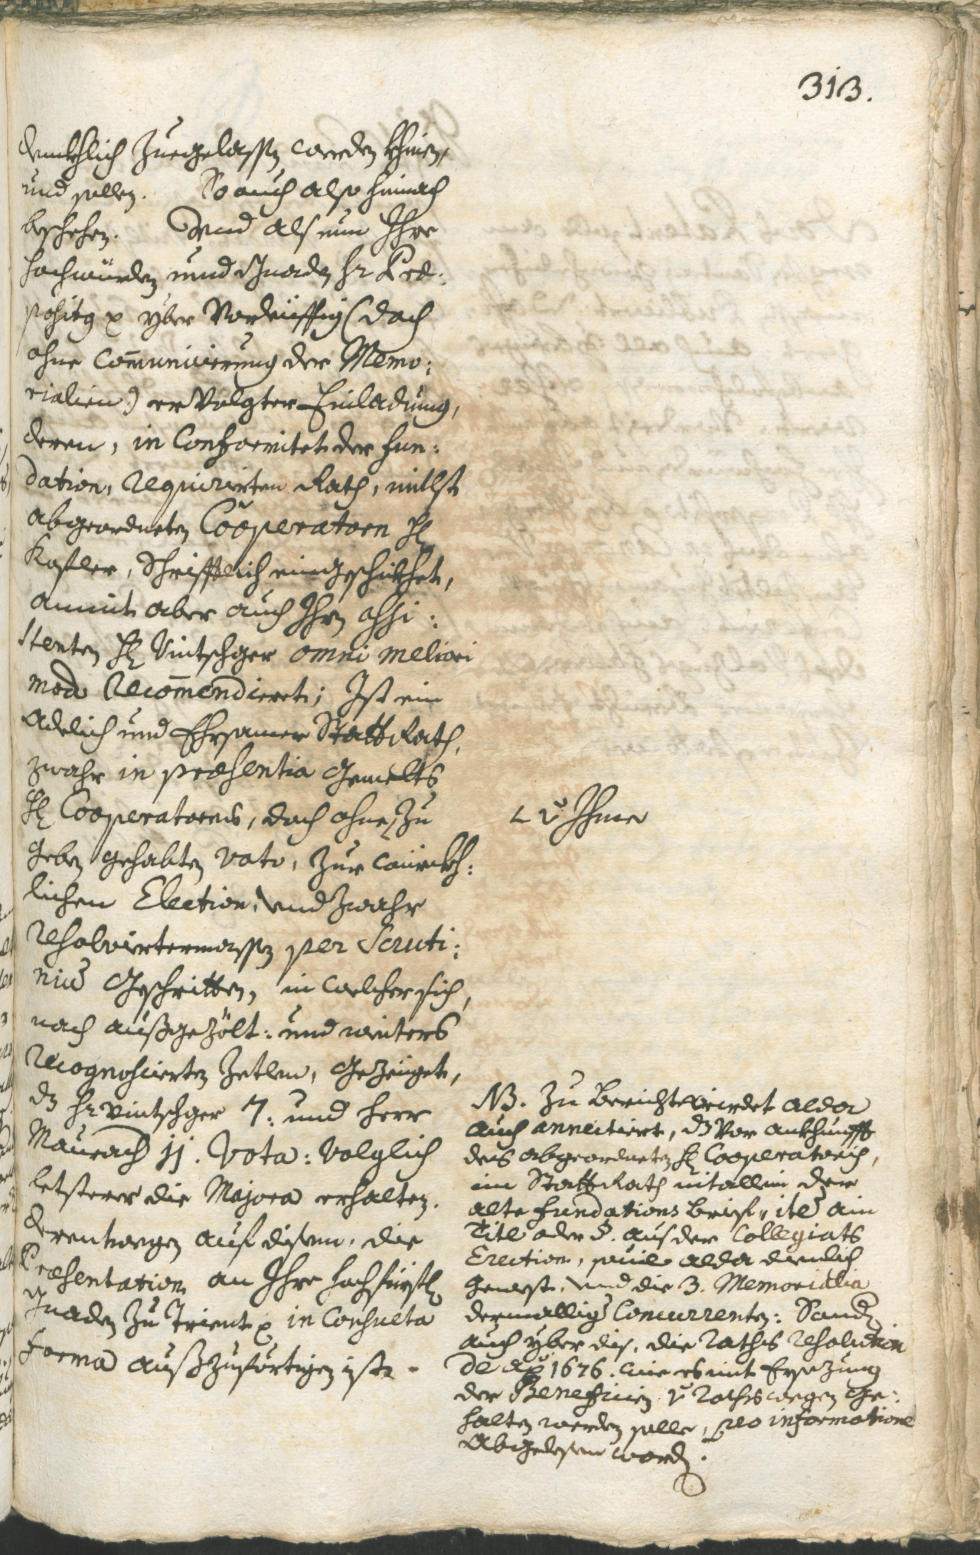 313.
denkhlich zuegelassen werden khinen,
und sollen. So auch also hinnach
beschehen. Und als nun Ihre
Hochwürden und Gnaden Hr Præ:
positg ꝛc yber Vorleiffig (doch
ohne Com̄unicierung der Memo:
rialien) ervolgter Einladung,
deren, in Conformitet der fun:
dation, requirirten Rath, mitlst
abgeordneten Cooperatorn H.
Kastler, Schrifftlich eingeschikhet,
anmit aber auch Ihren Assi:
stenten H. Vintschger omni meliori
modo Recom̄endieret; Ist ein
Adelich und Ehrsamer Statt Rath,
zwahr in præsentia gemelts
H. Cooperatoris, doch ohne, zu
geben gehabten voto, zur würckh:
lichen Election, und zwahr
resolviertermassen per Scruti:
niũ geschritten, in welcher sich,
nach außgezölt: und weiters
recognoscierten Zetlen, gezaiget,
dz Hr Vintschger 7: und Herr
Maurach 11. Vota: volglich
letsterer die Majora erhalten.
derentwegen auf disem, die
Præsentation an Ihre hochfürstl.
Gnaden zu Trient ꝛc in Consueta
Forma außzuförtigen ist.
∟ v Ihme
NB. Zu Bericht wirdet alda
auch annectiert, dz vor ankhunfft
deis abgeordneten H. Cooperatoris,
im Statt Rath nit allein der
alte fundations Brief, itẽ ain
Titl oder §. aus der Collegiats
Erection, sovil alda dienlich
gewest, und die 3. Memorialia
dermalligẽ Concurrenten: Sondern
auch yber dis, die Raths Resolution
de aõ 1676. wie es mit Ersezung
der Beneficien v Raths wegen ge:
halten werden solle, pro informatione
abgelesen worden.